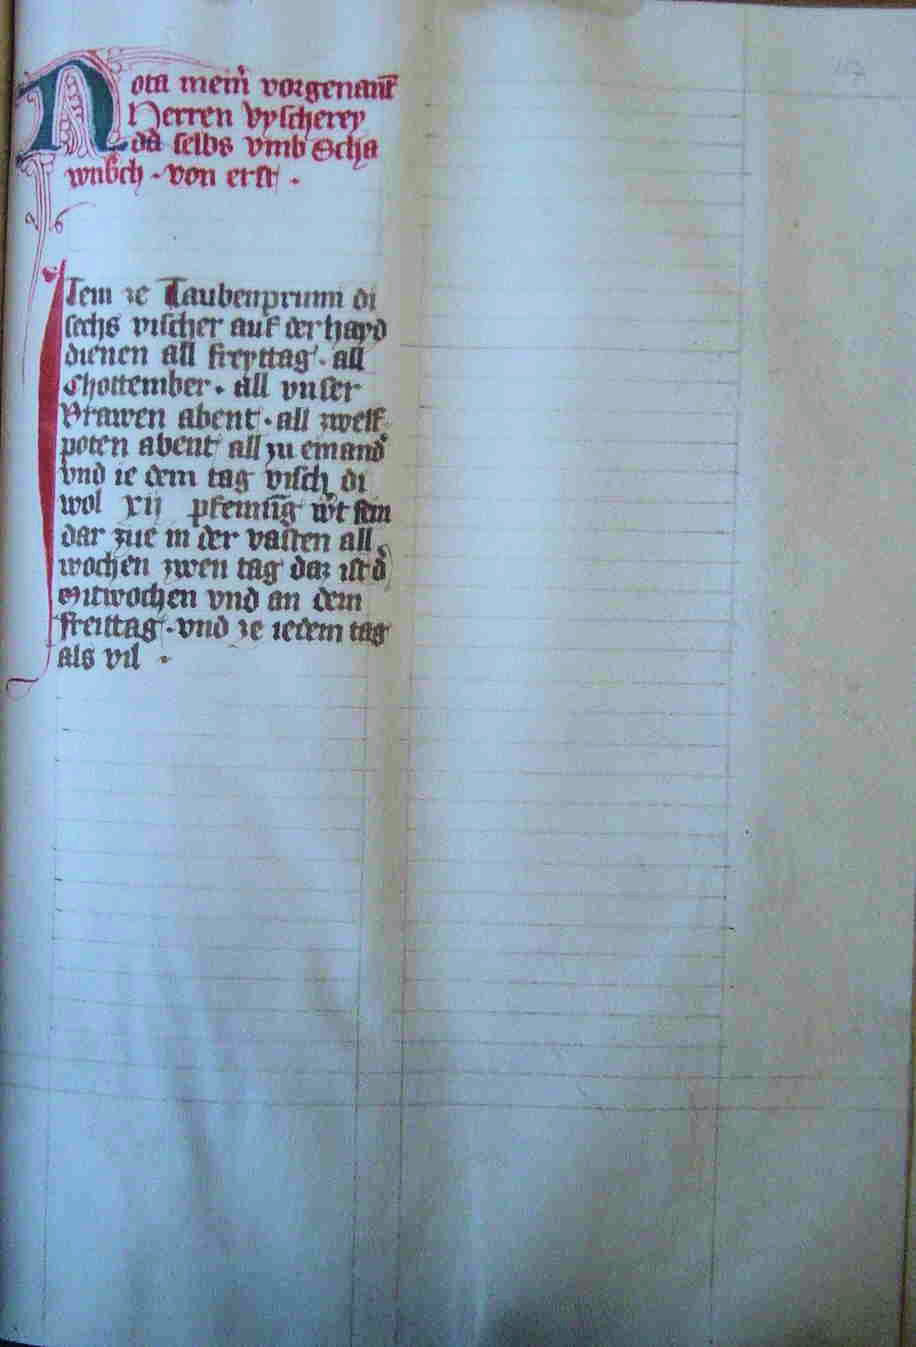 Nota mein̄ vorgenant̄
Herren vyscherey
da selbs vmb Scha
wnbͤch · von erst ·
Item ze Taubenprunn di
sechs vischer auf der hayd
dienen all freyttag · all
Chottember · all vnser
Vrawen abent · all zwelf
poten abent all zu emand̄
vnd ie dem tag visch di
wol xij pfenning wͤrt sein
dar zue in der vasten all
wochen zwen tag daz ist d̄
Mitwochen vnd an dem
freittag · vnd ze iedem tag
als vil ·